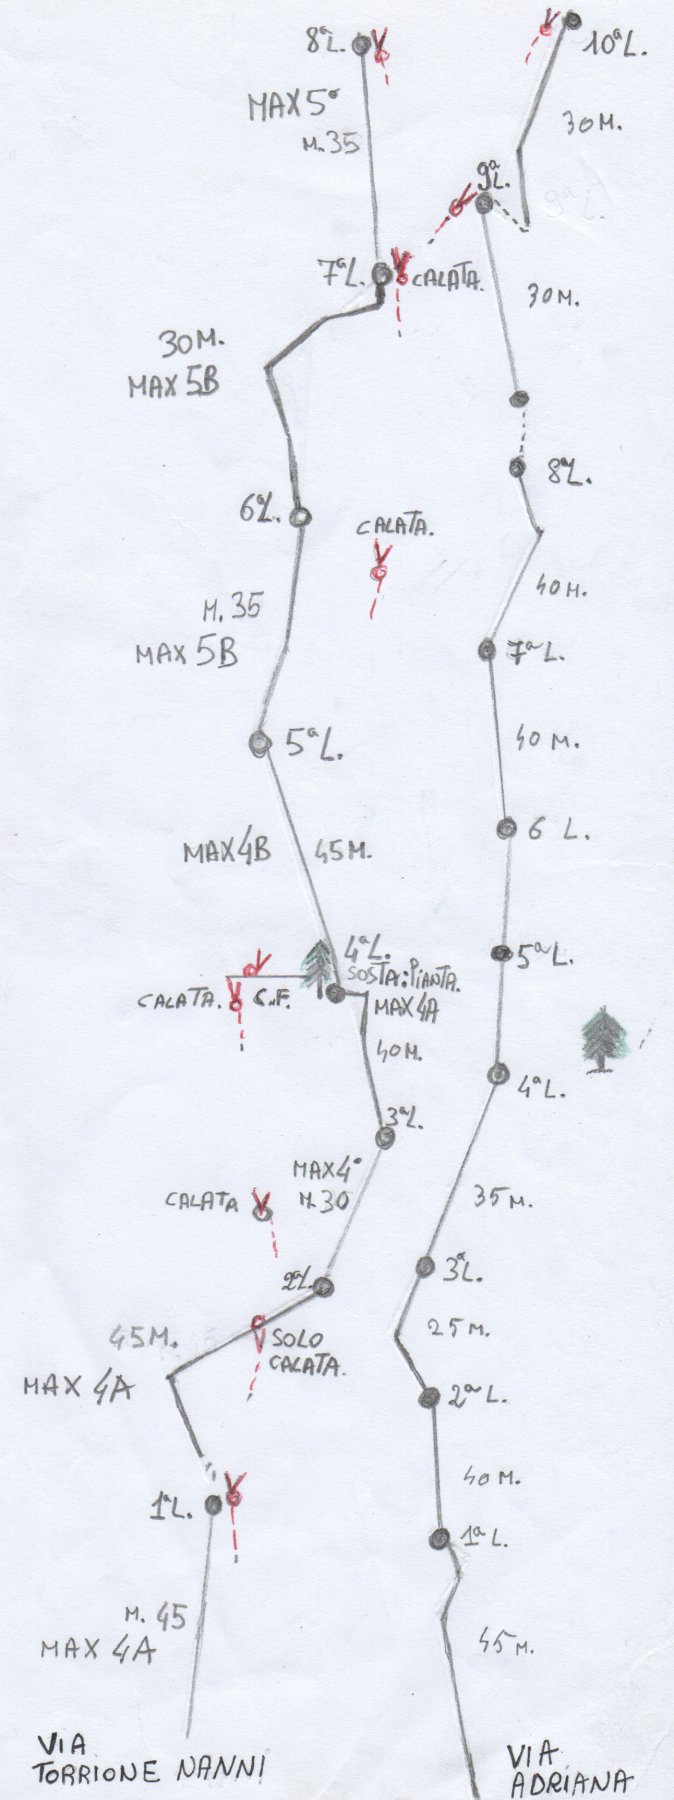 8ªL.
10ªL.
MAX 5°
M. 35
30M.
9ª
L.
9ªL.
7ªL.
CALATA.
30M.
30M.
MAX 5B
6ªL.
CALATA.
8ªL.
M. 35
MAX 5B
40M.
7ªL.
5ªL.
40 M.
MAX 4B
45M.
6 L.
4ªL.
SOSTA: PIANTA.
MAX 4A
5ªL.
CALATA.
C.F.
40M.
4ªL.
3ªL.
MAX 4°
M. 30
CALATA
35 M.
2ªL.
3ªL.
45M.
25 M.
SOLO
CALATA.
MAX 4A
2ªL.
40M.
1ªL.
1ªL.
M. 45
MAX 4A
45 M.
VIA
TORRIONE NANNI
VIA
ADRIANA